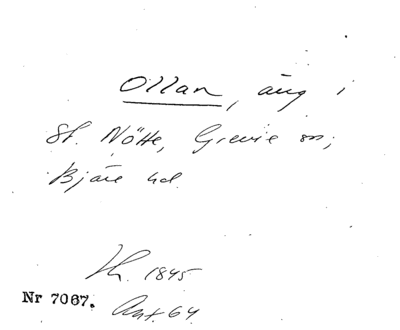 Ollan, äng i
St. Nötte, Grevie sn;
Bjäre hd.
1845
Nr 7067. Ant. 64